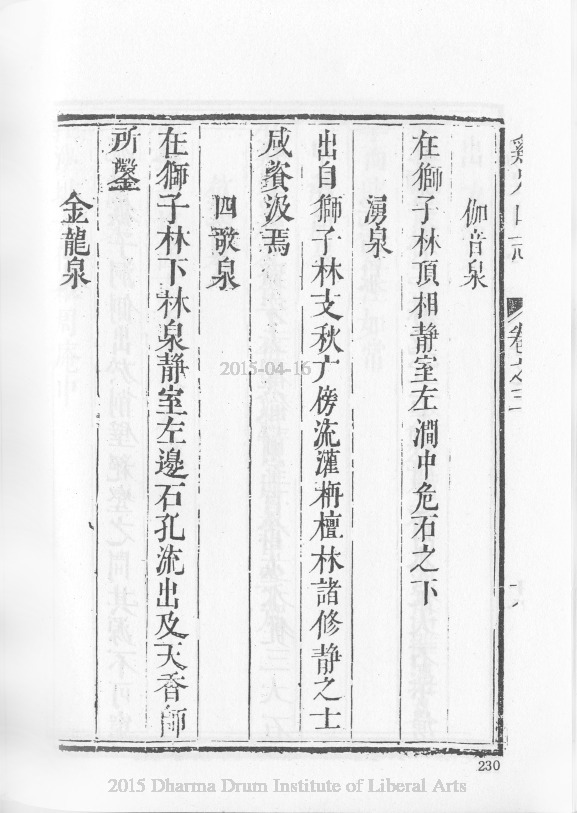 雞足山志 卷之三
伽音泉
在獅子林頂相静室左澗中危石之下
湧泉
出自獅子林支秋广傍流灌栴檀林諸修静之士
咸賚汲焉
四歌泉
在獅子林下林泉静室左邊石孔流出及天香師
所鑿
金龍泉
2015-04-16
230
2015 Dharma Drum Institute of Liberal Arts